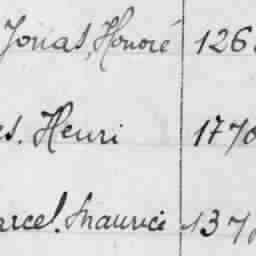 Jonas, Honoré 126
es. Henri 1770
arcel. Maurice 137